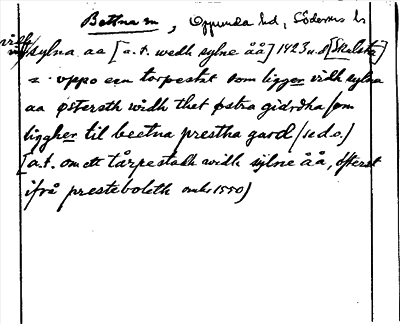 Bettna sn, Oppunda hd, Söderm. l:
vidh sylna aa [a.t. wedh sylne åå] 1423 u.d. [Skoloster]
= uppo een torpestat som ligger vidh sylna
aa østeroth widh thet østra gidrdha som
ligher til beetna prestha gard (se d.o.)
[a.t. om ett tårpestadh widh sylne åå, österst
ifrå presteboleth omkr 1550)